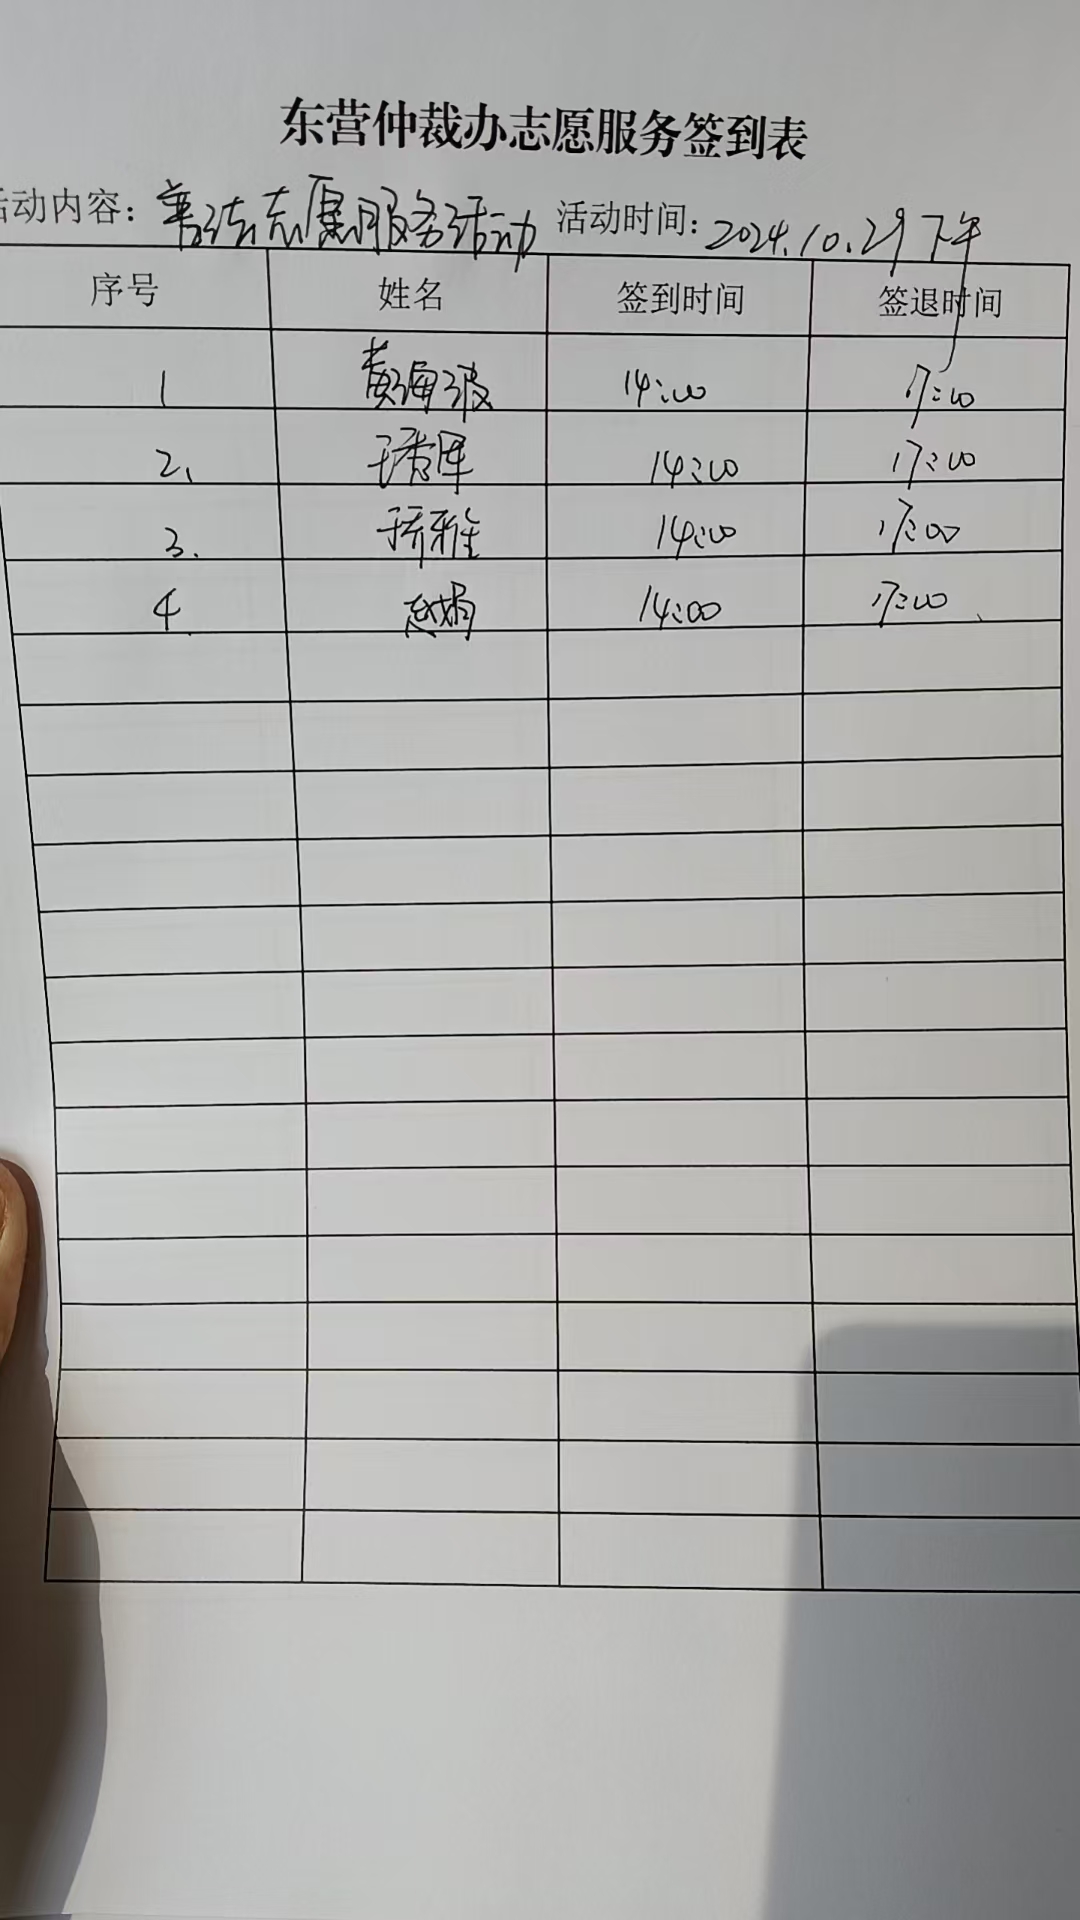 东营仲裁办志愿服务签到表
活动内容: 普法志愿服务活动 活动时间: 2024.10.29下午
序号 姓名 签到时间 签退时间
1 黄海波 14:00 17:00
2、 14:00 17:00
3. 14:00 17:00
4. 赵娟 14:00 17:00